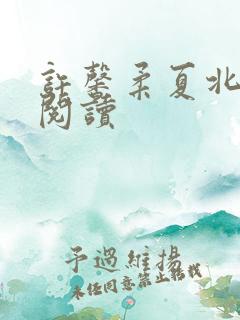 許馨柔夏北
閱讀
予過維揚
未经同意禁止转载